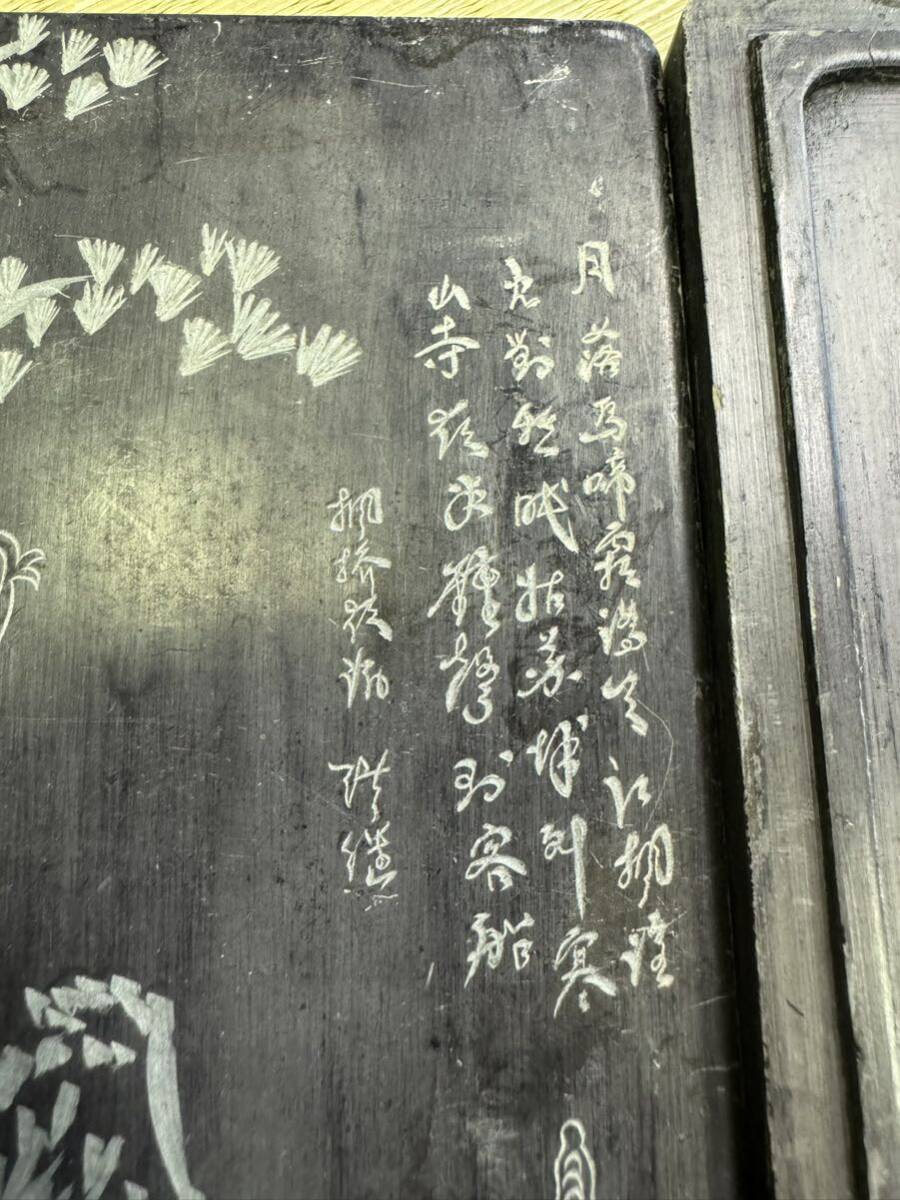 月落烏啼霜滿天江楓漁
火對愁眠姑苏城外寒
山寺夜半鐘聲到客船
楓橋夜泊 張継